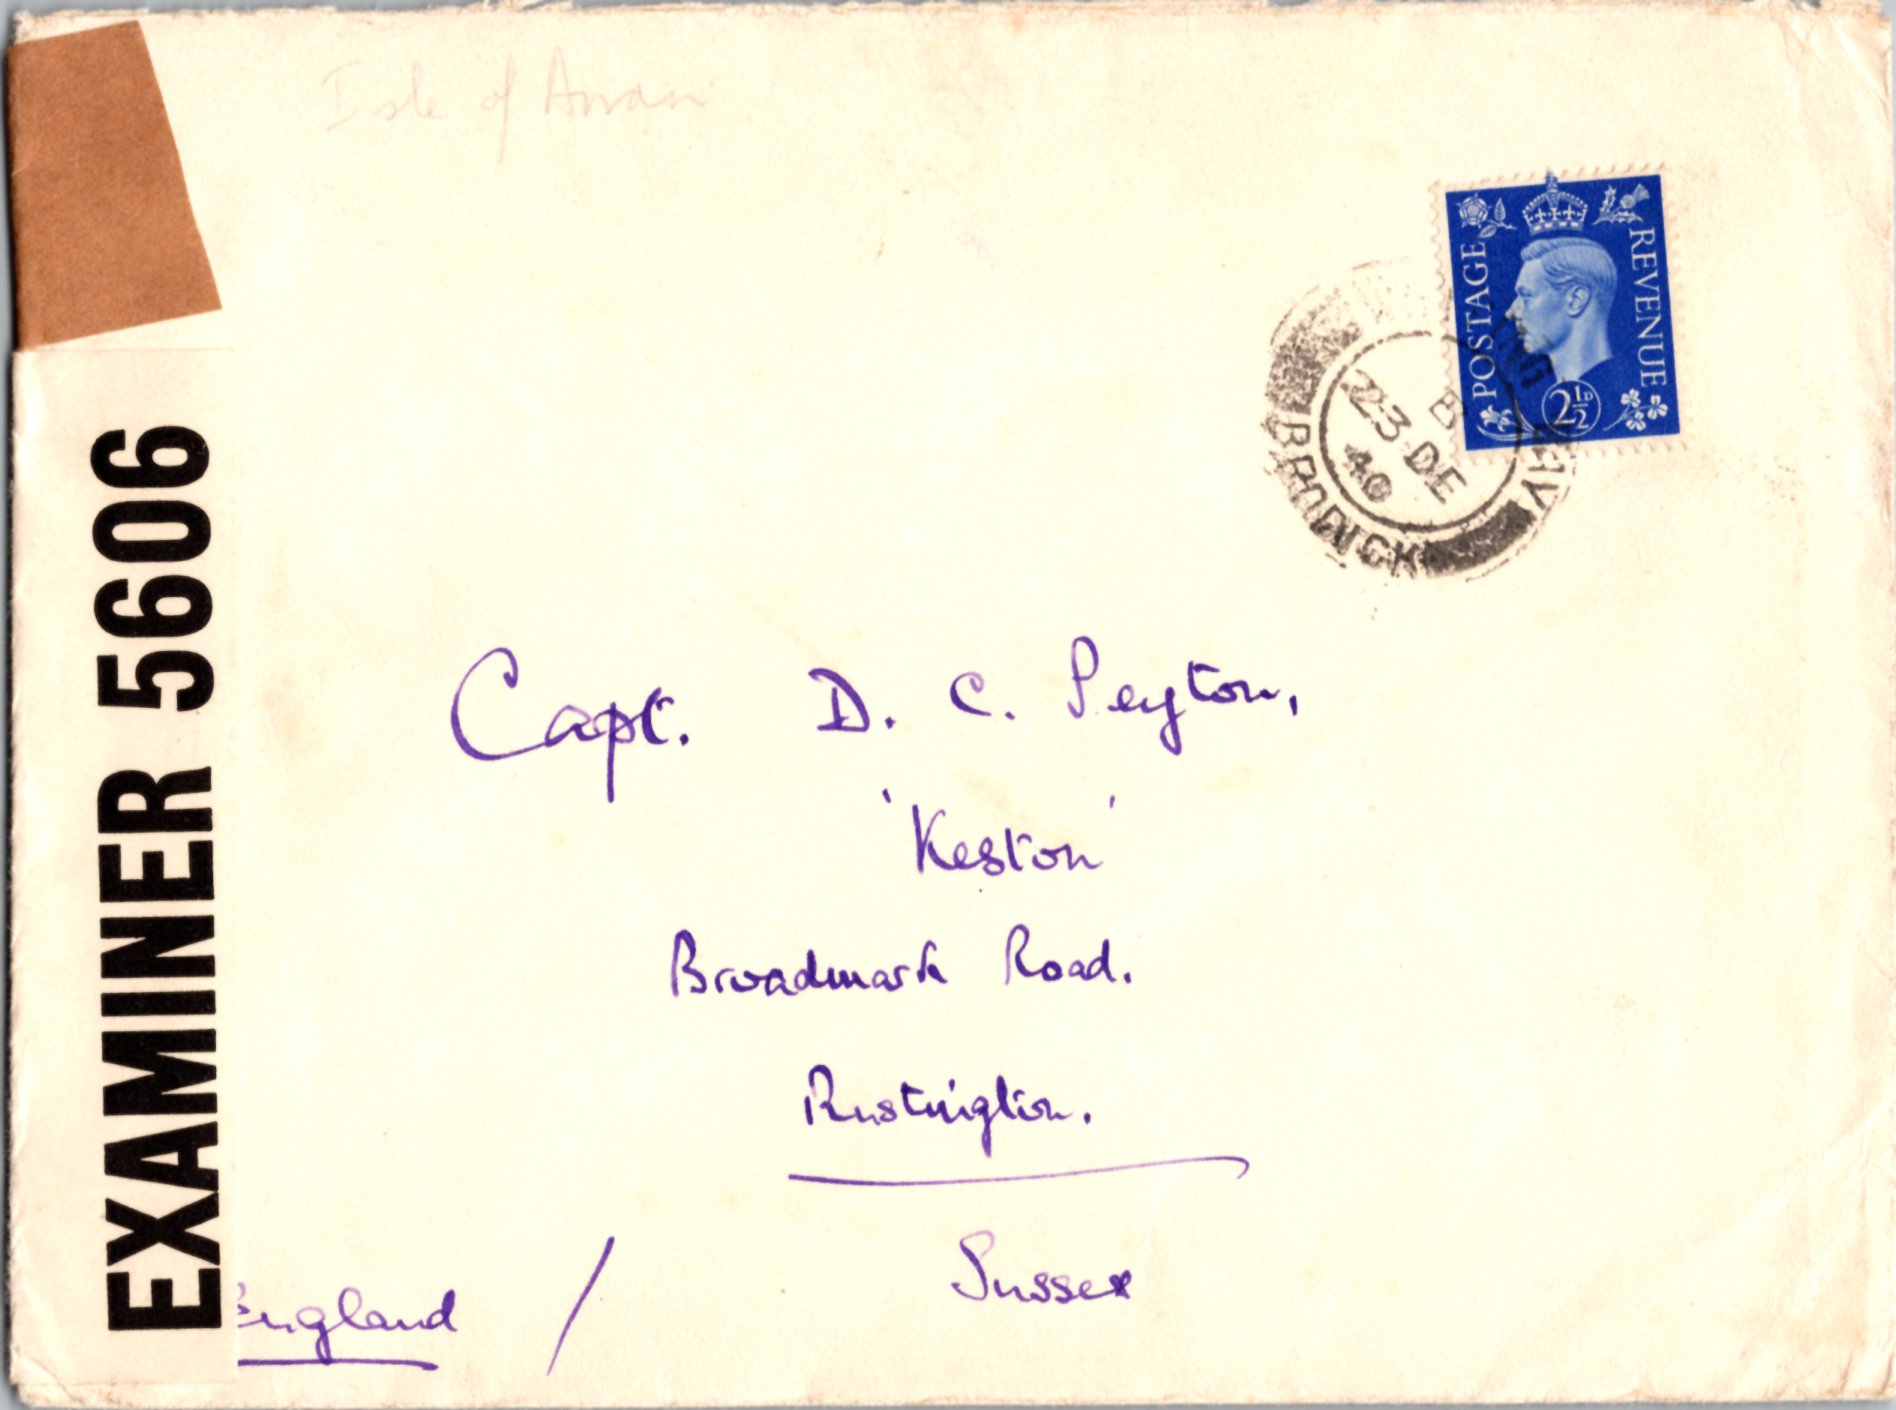 Isle of Arran
POSTAGE
REVENUE
2½D
WHITING BAY
BRODICK
B
23 DE
40
EXAMINER 5606
Capt. D. C. Peyton,
'Keston'
Broadmark Road.
Rustington.
Sussex
England /